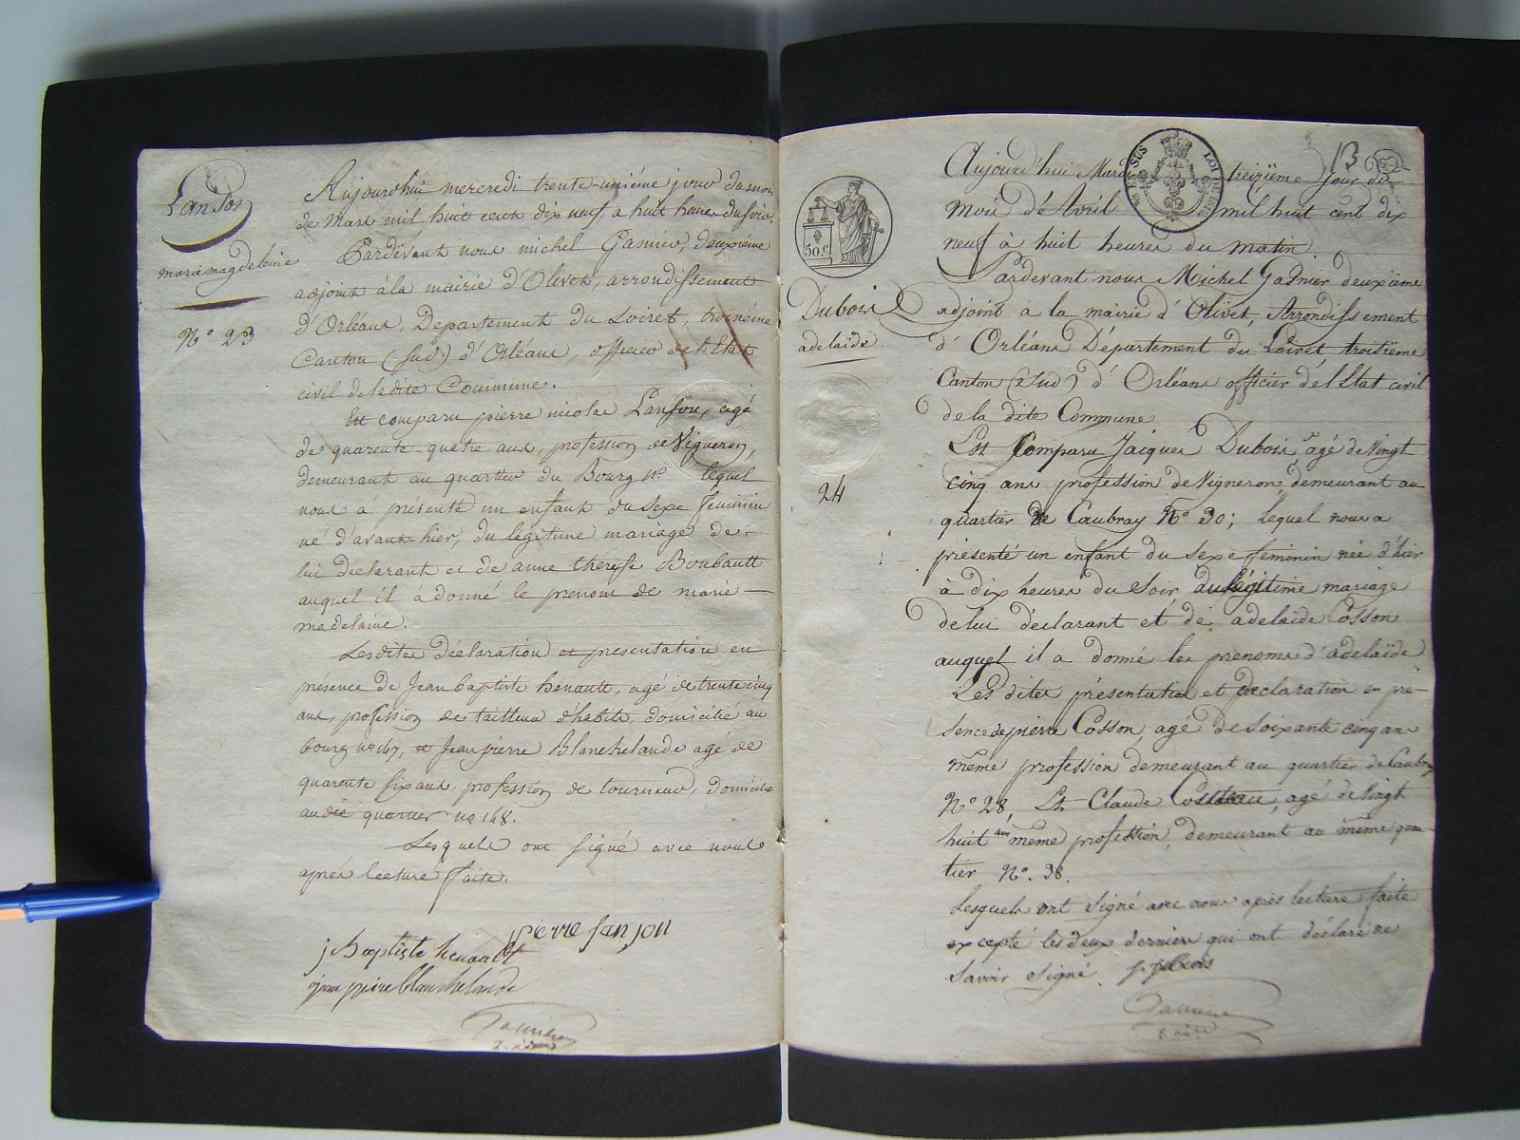 Lanson
marie magdeleine
N° 23
Aujourdhui mercredi trente-unième jour du mois
de Mars mil huit cent dix neuf a huit heures du soir.
Pardevant nous michel Garnier, deuxième
adjoint à la mairie d'Olivet, arrondissement
d'Orléans, Departement du Loiret, troisième
Canton (sud) d'Orléans, officier de l'Etat
civil de ladite Commune.
Est comparu pierre nicolas agé
de quarente-quatre ans, profession de Vigneron,
demeurant au quartier du Bourg n° lequel
nous a présenté un enfant du sexe feminin
né d'avant-hier, du légitime mariage de
lui déclarant et de anne therese Boubault
auquel il à donné le prenom de marie
madelaine.
Lesdites déclaration et presentation en
présence de Jean baptiste henault, agé de trente cinq
ans, profession de tailleur d'habits, domicilié au
bourg n° 167, et Jean pierre Blanchelande agé de
quarente six ans, profession de tourneur, domicilié
audit quartier n° 148.
Lesquels ont signé avec nous
après lecture faite.
pierre
j Baptiste henault
jean pierre blanchelande
Garnier
50 c.
Dubois
adelaïde
24
13
Aujourd'hui Mardi treizième jour du
mois d'Avril mil huit cent dix
neuf à huit heures du matin.
Pardevant nous Michel Garnier deuxième
adjoint à la mairie d'Olivet, Arrondissement
d'Orléans Département du Loiret troisième
Canton (Sud) d'Orléans officier de l'Etat civil
de la dite Commune
Est Comparu Jacques Dubois agé de vingt
cinq ans profession de Vigneron demeurant au
quartier de Caubray N° 30; lequel nous a
présenté un enfant du sexe feminin née d'hier
à dix heures du soir du légitime mariage
de lui déclarant et de adelaïde Cosson
auquel il a donné les prenoms d'adelaïde
Les dites présentation et declaration en pré-
sence de pierre Cosson, agé de soixante cinq ans
même profession demeurant au quartier de Caubray
N° 28, Et Claude agé de vingt
huit ans même profession, demeurant au même quar-
tier N°. 38.
Lesquels ont signé avec nous après lecture faite
excepté les deux derniers qui ont déclaré ne
savoir signé. J. Dubois
Garnier